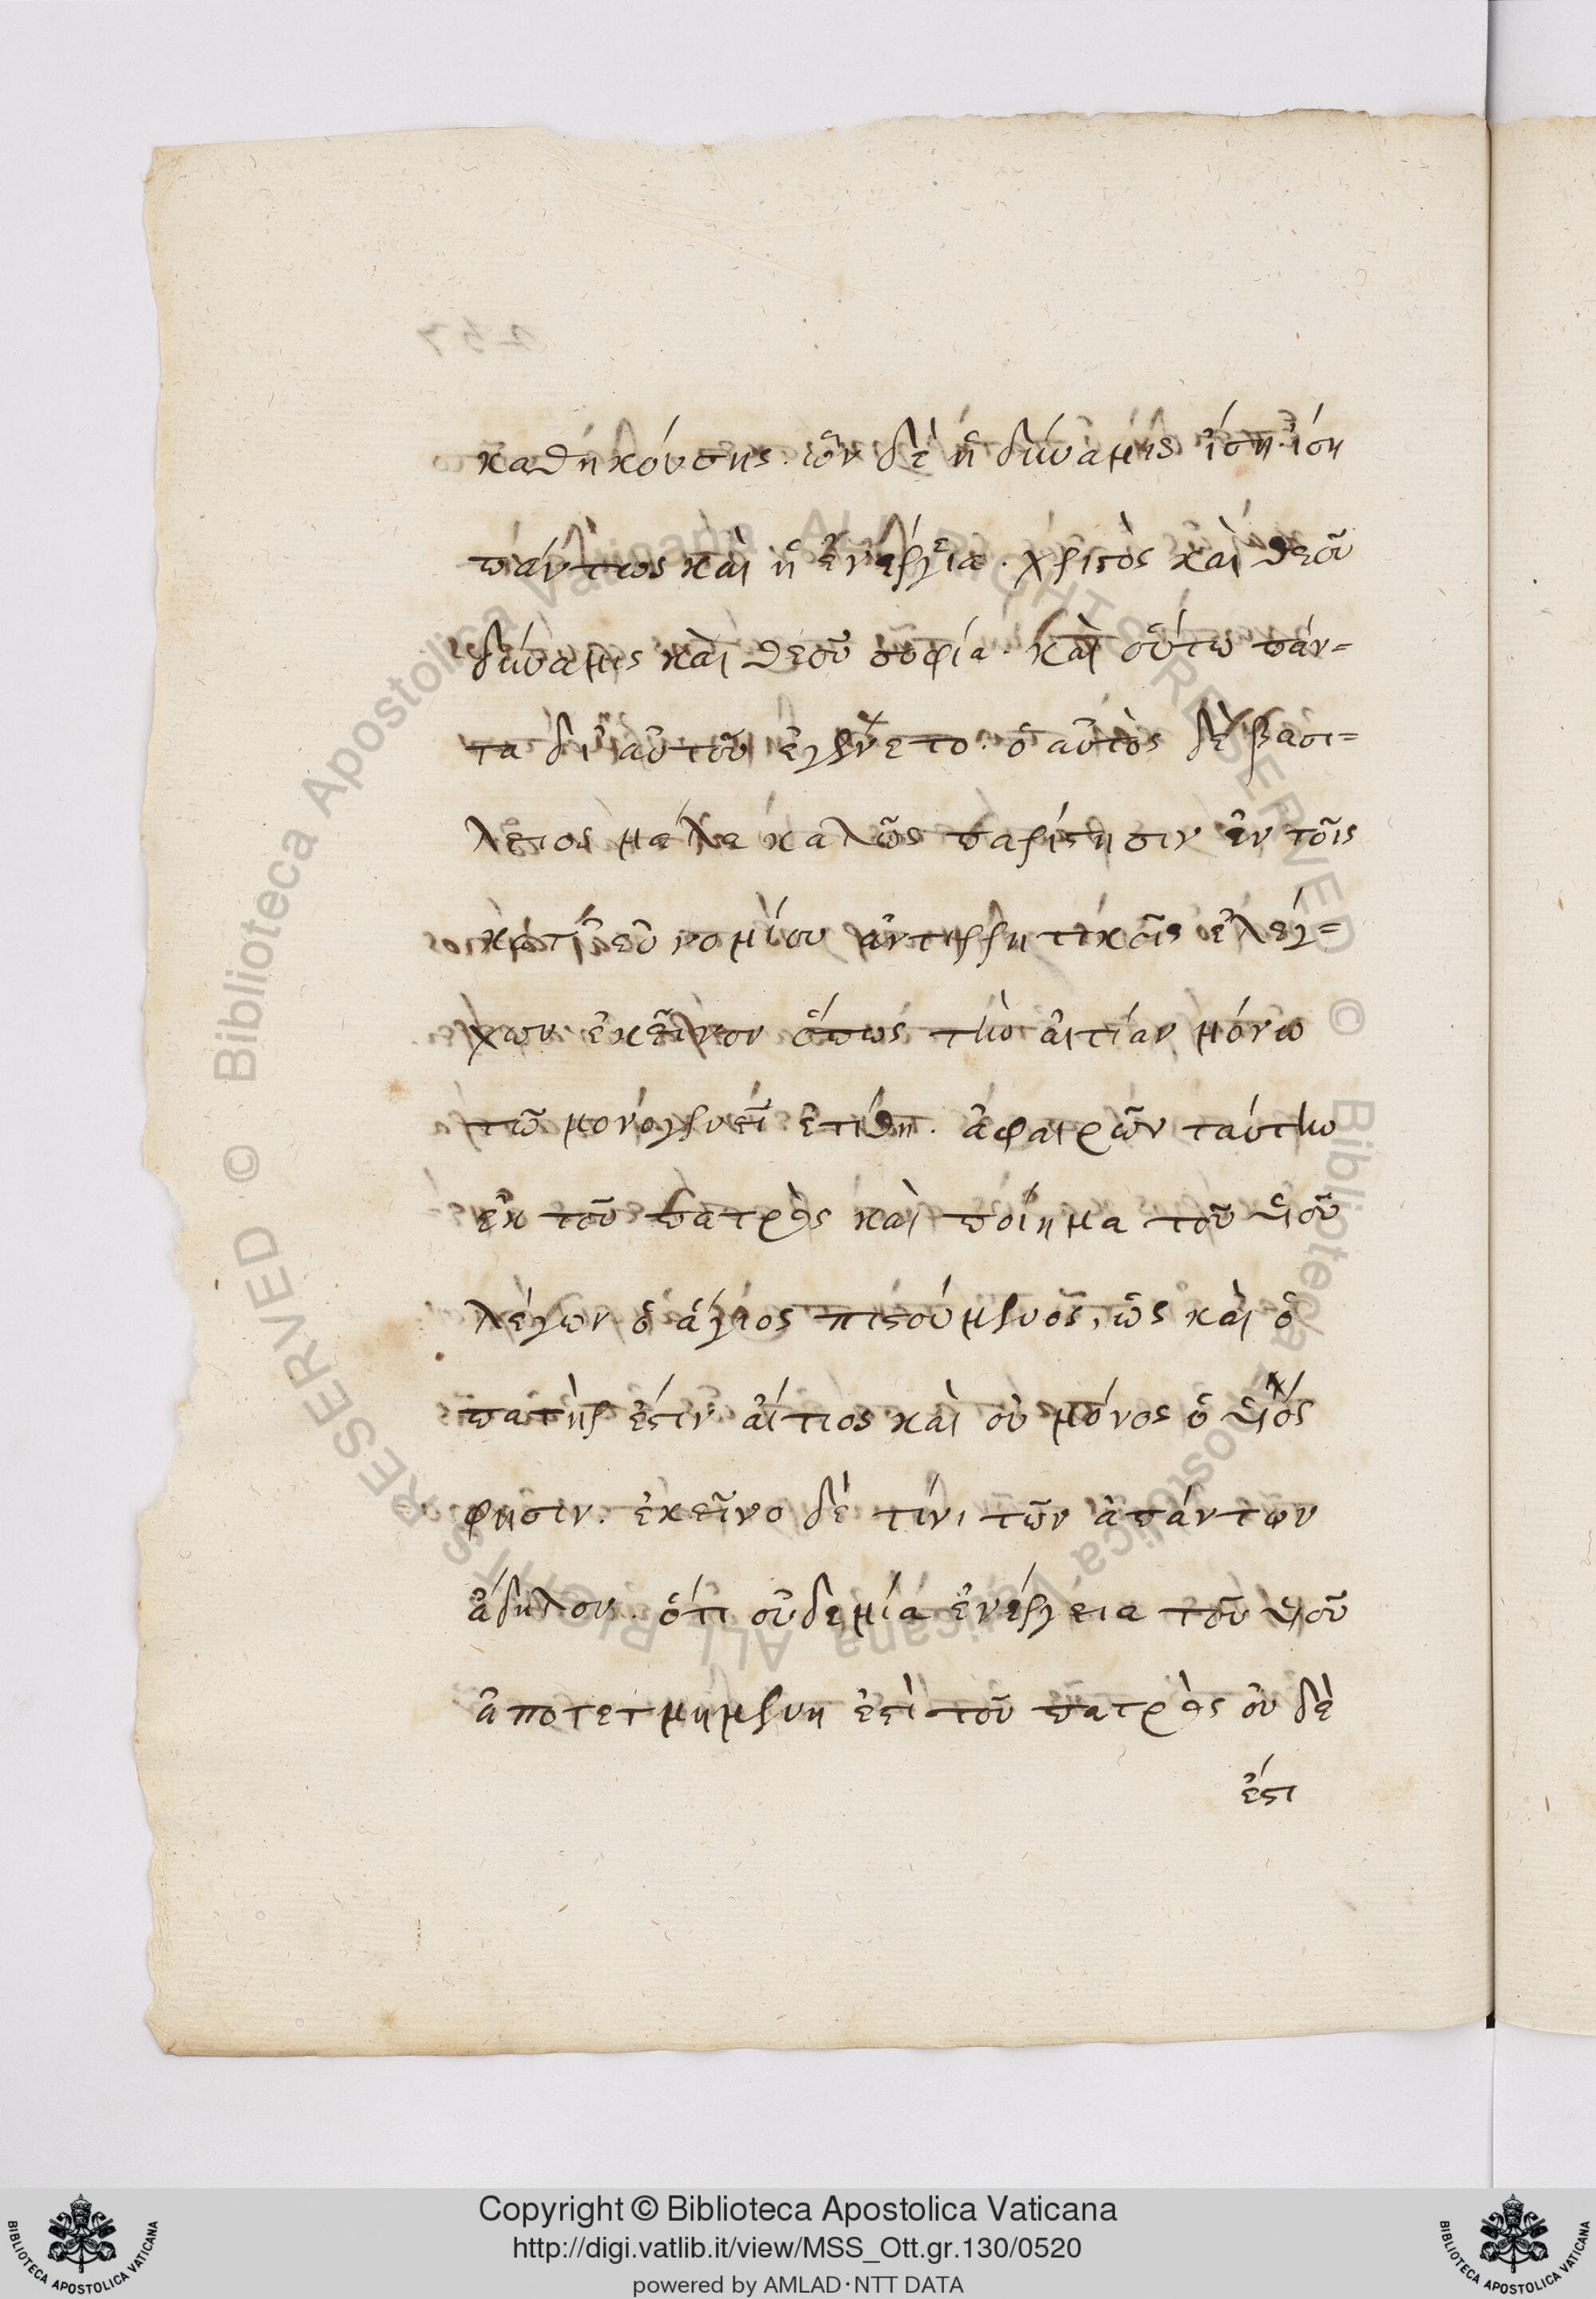 καθηκούσης. ὧν δὲ ἡ δύναμις ἴση ἴση
πάντως καὶ ἡ ἐνέργεια. χριστὸς καὶ θεοῦ
δύναμις καὶ θεοῦ σοφία. καὶ οὕτω πάν=
τα δι' αὐτοῦ ἐγένετο. ὁ αὐτὸς δὲ βασι=
λειος μάλα καλῶς παρίστησιν ἐν τοῖς
κατ' εὐνομίου ἀντιρρητικοῖς ἐλέγ=
χων ἐκεῖνον ὅπως τὴν αἰτίαν μόνω
τῶ μονογενεῖ ἐτίθη. ἀφαιρῶν ταύτην
ἐκ τοῦ πατρὸς καὶ ποίημα τοῦ υἱοῦ
λέγων ὁ ἅγιος πιστούμενος, ὡς καὶ ὁ
πατήρ ἐστιν αἴτιος καὶ οὐ μόνος ὁ υἱός
φησιν. ἐκεῖνο δὲ τίνι τῶν ἁπάντων
ἄδηλον. ὅτι οὐδεμία ἐνέργεια τοῦ υἱοῦ
ἀποτετμημένη ἐστὶ τοῦ πατρὸς οὐδὲ
ἐστι
Copyright © Biblioteca Apostolica Vaticana
http://digi.vatlib.it/view/MSS_Ott.gr.130/0520
powered by AMLAD·NTT DATA
BIBLIOTECA APOSTOLICA VATICANA
BIBLIOTECA APOSTOLICA VATICANA
© Biblioteca Apostolica Vaticana ALL RIGHTS RESERVED
© Biblioteca Apostolica Vaticana ALL RIGHTS RESERVED